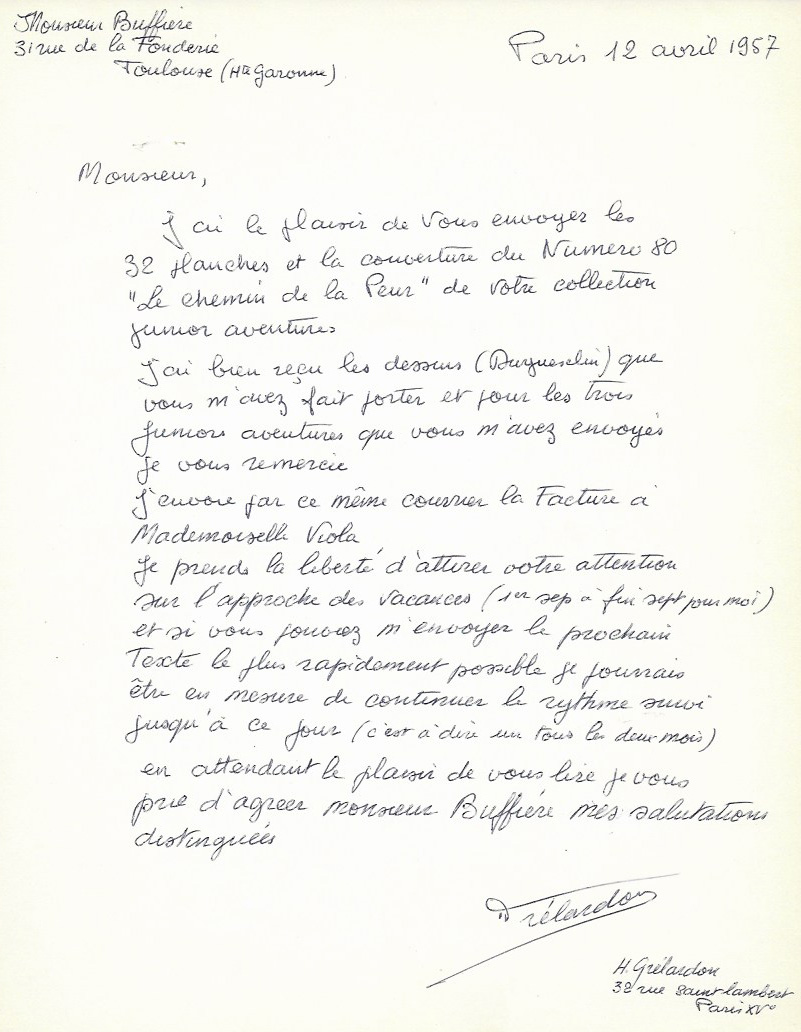 Monsieur Buffière
31 rue de la Fonderie
Toulouse (Hte Garonne)
Paris 12 avril 1957
Monsieur,
J'ai le plaisir de vous envoyer les
32 planches et la couverture du Numero 80
"Le chemin de la Peur" de votre collection
junior aventures
J'ai bien reçu les dessins (Duguesclin) que
vous m'avez fait porter et pour les trois
juniors aventures que vous m'avez envoyés
je vous remercie
J'envoie par ce même courrier la Facture à
Mademoiselle Viola
Je prends la liberté d'attirer votre attention
sur l'approche des vacances (1er sep à fin sept pour moi)
et si vous pouviez m'envoyer le prochain
Texte le plus rapidement possible je pourrais
être en mesure de continuer le rythme suivi
jusqu'à ce jour (c'est à dire un tous les deux mois)
en attendant le plaisir de vous lire je vous
prie d'agreer monsieur Buffière mes salutations
distinguées
Grélardon
H. Grélardon
32 rue saint lambert
Paris XVe